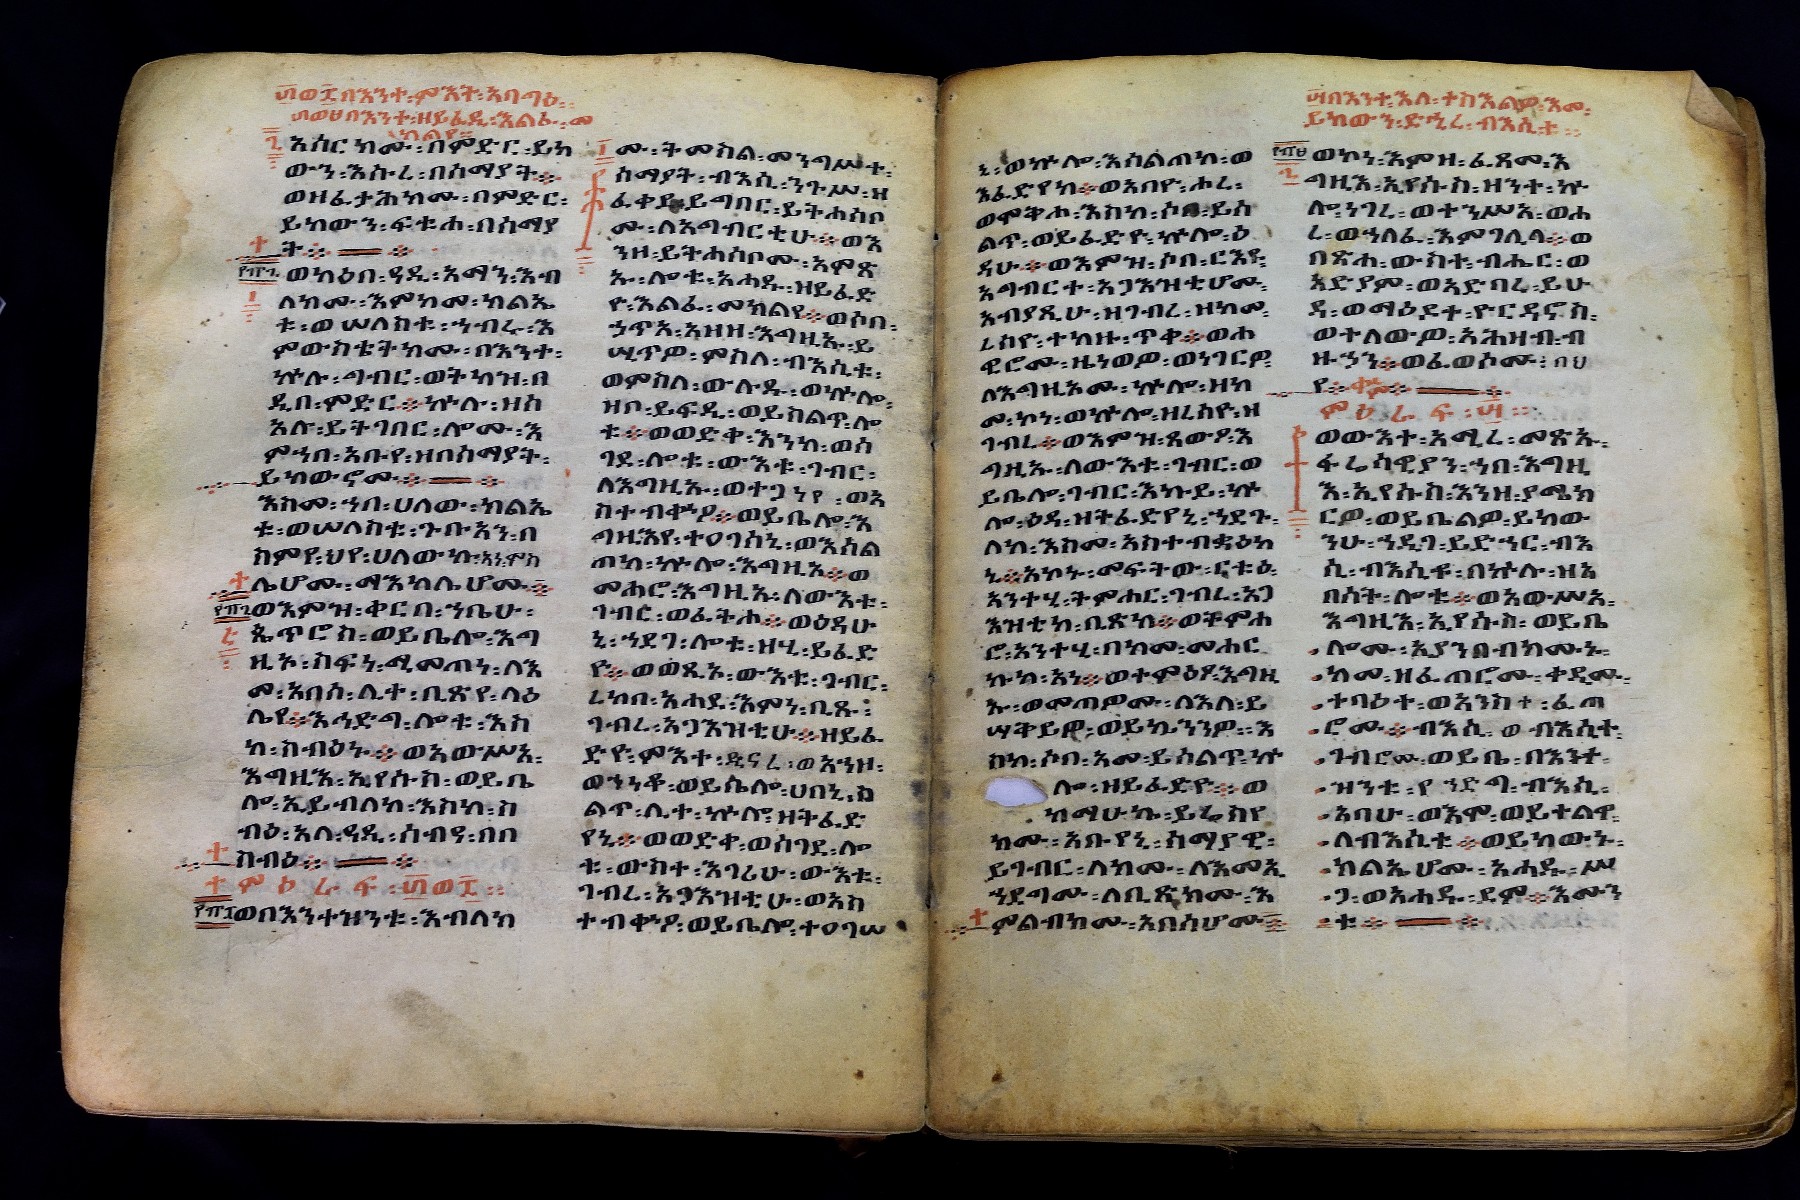 ፶ወ፯ በእንተ፡ምእት፡አባግዕ።
፶ወ፰በእንተ፡ዘይፈዲ፡እልፈ፡መ
ክልየ።
አሰርክሙ፡በምድር፡ይከ
ውን፡እሱረ፡በሰማያት፨
ወዘፈታሕክሙ፡በምድር፡
ይከውን፡ፍቱሐ፡በሰማያ
ት፨
ወካዕበ፡ዓዲ፡አማን፡እብ
ለክሙ፡እምከመ፡ክልኤ
ቱ፡ወሠለስቱ፡ኀብሩ፡እ
ምውስቴትክሙ፡በእንተ፡
ኵሉ፡ግብር፡ወትካዝ፡በ
ዲበ፡ምድር፨ኵሉ፡ዘሰ
አሉ፡ይትገበር፡ሎሙ፡እ
ምኀበ፡አቡየ፡ዘበሰማያት፡
ይከውኖሙ፨
እስመ፡ኀበ፡ሀለው፡ክልኤ
ቱ፡ወሠለስቱ፡ጉቡአን፡በ
ስምየ፡ህየ፡ሀለውኩ፡አነ፡ምስ
ሌሆሙ፡ማእከሌሆሙ፨
ወእምዝ፡ቀርበ፡ኀቤሁ፡
ጴጥሮስ፡ወይቤሎ፡እግ
ዚኦ፡ስፍነ፡ሚመጠነ፡ለእ
መ፡አበሰ፡ሊተ፡ቢጽየ፡ላዕ
ሌየ፨እኅድግ፡ሎቱ፡እስ
ከ፡ስብዕኑ፨ወአውሥአ፡
እግዚእ፡ኢየሱስ፡ወይቤ
ሎ፡ኢይብለከ፡እስከ፡ስ
ብዕ፡አላ፡ዓዲ፡ሰብዓ፡በበ
ስብዕ፨
ምዕራፍ፡፶ወ፯።
ወበእንተዝንቱ፡እብለክ
ሙ፡ትመስል፡መንግሥተ፡
ሰማያት፡ብእሴ፡ንጉሠ፡ዘ
ፈቀደ፡ይግበር፡ይትሐሰቦ
ሙ፡ለአግብርቲሁ፨ወእ
ንዘ፡ይትሐሰቦሙ፡አምጽ
ኡ፡ሎቱ፡አሐዱ፡ዘይፈድ
ዮ፡እልፈ፡መክልየ፨ወሶበ፡
ኀጥአ፡አዘዘ፡እግዚኡ፡ይ
ሢጥዎ፡ምስለ፡ብእሲቱ፡
ወምስለ፡ውሉዱ፡ወኵሎ፡
ዘቦ፡ይፍዲ፡ወይሰልጥ፡ሎ
ቱ፨ወወድቀ፡እንከ፡ወሰ
ገደ፡ሎቱ፡ውእቱ፡ገብር፡
ለእግዚኡ፡ወተጋነየ፡ወአ
ስተብቍዖ፨ወይቤሎ፡እ
ግዚእየ፡ተዐገሰኒ፡ወእሰል
ጠከ፡ኵሎ፡እግዚእ፨ወ
መሐሮ፡እግዚኡ፡ለውእቱ፡
ገብሮ፡ወፈትሖ፨ወዕዳሁ
ኒ፡ኀደገ፡ሎቱ፡ዘሂ፡ይፈድ
ዮ፨ወወፂኦ፡ውእቱ፡ገብር፡
ረከበ፡አሐደ፡እምነ፡ቢጹ፡
ገብረ፡እጋእዝቲሁ፨ዘይፈ
ድዮ፡ምእተ፡ዲናረ፡ወአኀዘ፡
ወኀነቆ፡ወይቤሎ፡ሀበኒ፡ሰ
ልጥ፡ሊተ፡ኵሎ፡ዘትፈድ
የኒ፨ወወድቀ፡ወሰገደ፡ሎ
ቱ፡ውስተ፡እገሪሁ፡ውእቱ፡
ገብረ፡እጋእዝቲሁ፡ወአስ
ተብቍዖ፡ወይቤሎ፡ተዐገሠ
ኒ፡ወኵሎ፡እሰልጠከ፡ወ
እፈድየከ፨ወአበየ፡ሖረ፡
ወሞቅሖ፡እስከ፡ሶበ፡ይሰ
ልጥ፡ወይፈድዮ፡ኵሎ፡ዕ
ዳሁ፨ወእምዝ፡ሶበ፡ርእዩ፡
አግብርተ፡አጋእዝቲሆሙ፡
አብያጺሁ፡ዝገብረ፡ዘከመ፡
ረስየ፡ተከዙ፡ጥቀ፨ወሐ
ዊሮሙ፡ዜነወዎ፡ወነገርዎ፡
ለእግዚኦሙ፡ኵሎ፡ዘከ
መ፡ኮነ፡ወኵሎ፡ዘረሰየ፡ዘ
ገብረ፨ወእምዝ፡ጸውዖ፡እ
ግዚኡ፡ለውእቱ፡ገብር፡ወ
ይቤሎ፡ገብር፡እኩይ፡ኵ
ሎ፡ዕዳ፡ዘትፈድየኒ፡ኀደጉ፡
ለከ፡እስመ፡አስተብቋዕከ
ኒ፨አኮኑ፡መፍትው፡ርቱዕ፡
አንተሂ፡ትምሐር፡ገብረ፡አጋ
እዝቲከ፡ቢጽከ፨ወትምሐ
ሮ፡አንተሂ፡በከመ፡መሐር
ኩከ፡አነ፨ወተምዕዖ፡እግዚ
ኡ፡ወመጠዎሙ፡ለእለ፡ይ
ሣቅይዎ፡ወይኬንንዎ፡እ
ስከ፡ሶበ፡አመ፡ይሰልጥ፡ኵ
ሎ፡ዘይፈድዮ፨ወ
ከማሁኬ፡ይሬስየ
ክሙ፡አቡየኒ፡ሰማያዊ፡
ይገብር፡ለክሙ፡ለእመኢ
ኀደግሙ፡ለቢጽክሙ፡እ
ምልብክሙ፡አበሳሆሙ፨
፶በእንተ፡እለ፡ተስእልዎ፡እመ፡
ይከውን፡ድኂረ፡ብእሲት።
ወኮነ፡እምዘ፡ፈጸመ፡እ
ግዚእ፡ኢየሱስ፡ዘንተ፡ኵ
ሎ፡ነገረ፡ወተንሥአ፡ወሐ
ረ፡ወኀለፈ፡እምገሊላ፨ወ
በጽሐ፡ውስተ፡ብሔር፡ወ
አድያም፡ወአድባረ፡ይሁ
ዳ፡ወማዕዶተ፡ዮርዳኖስ፡
ወተለውዎ፡አሕዛብ፡ብ
ዙኃን፨ወፈወሶሙ፡በህ
የ፨
ምዕራፍ፡፶።
ወውእተ፡አሚረ፡መጽኡ፡
ፋሬሳዊያን፡ኀበ፡እግዚ
እ፡ኢየሱስ፡እንዘ፡ያሜክ
ርዎ፡ወይቤልዎ፡ይከው
ንሁ፡ኀዲገ፡ይድኀር፡ብእ
ሲ፡ብእሲቶ፡በኵሉ፡ዘአ
በሰት፡ሎቱ፨ወአውሥአ፡
እግዚእ፡ኢየሱስ፡ወይቤ
ሎሙ፡ኢያንበብክሙኑ፡
ከመ፡ዘፈጠሮሙ፡ቀዲሙ፡
ተባዕተ፡ወአንስተ፡ፈጠ
ሮሙ፨ብእሴ፡ወብእሲተ፡
ገብሮሙ፡ወይቤ፡በእንተ፡
ዝንቱ፡የኀድግ፡ብእሲ፡
አባሁ፡ወእሞ፡ወይተልዋ፡
ለብእሲቱ፨ወይከውኑ፡
ክልኤሆሙ፡አሐዱ፡ሥ
ጋ፡ወአሐዱ፡ደም፨እሙን
ቱ፨